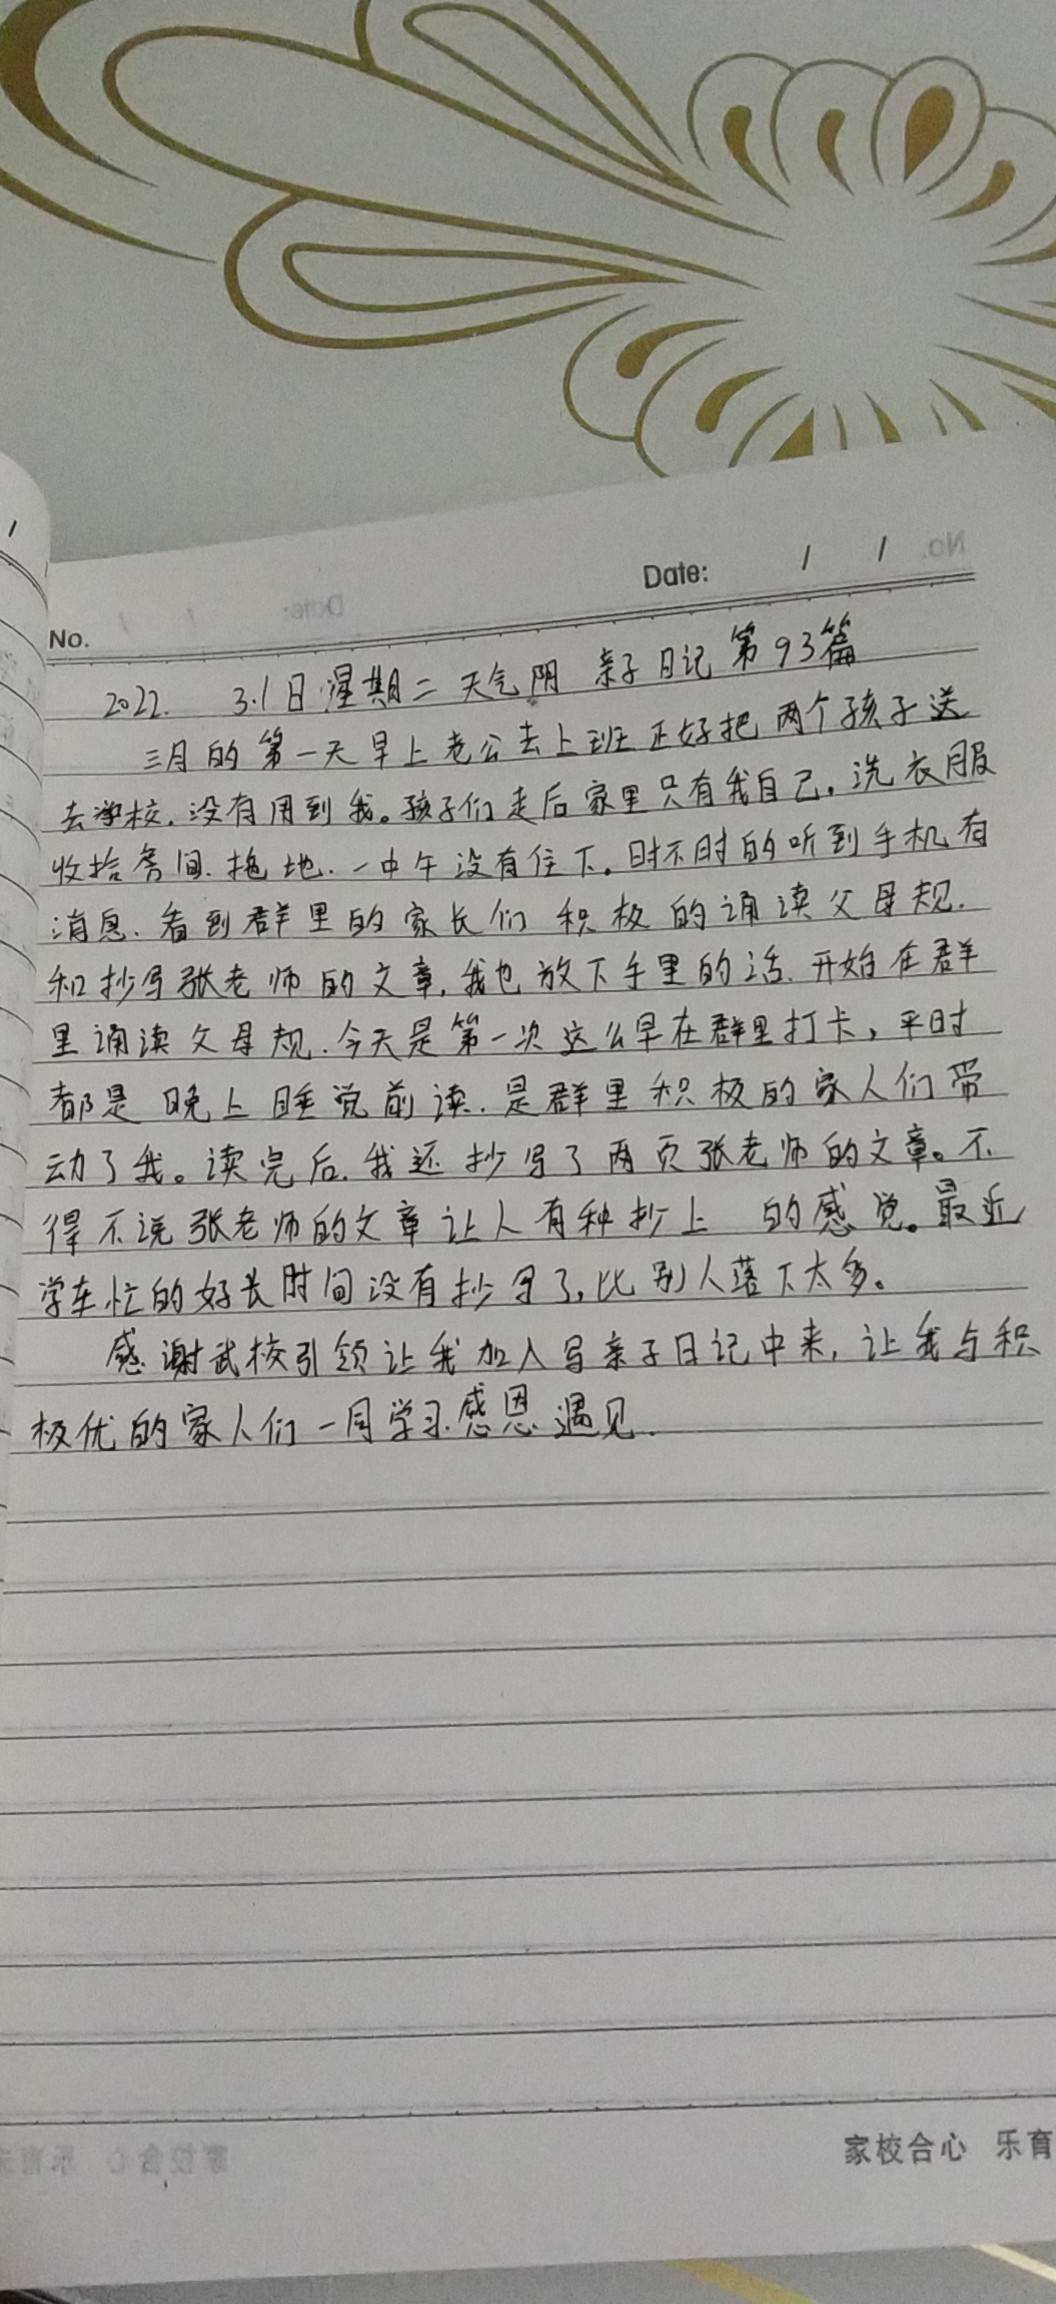 Date: / /
No.
2022. 3.1日 星期二 天气阴 亲子日记 第93篇
三月的第一天早上老公去上班正好把两个孩子送
去学校.没有用到我。孩子们走后家里只有我自己。洗衣服
收拾房间.拖地.一中午没有住下。时不时的听到手机有
消息.看到群里的家长们积极的诵读父母规.
和抄写张老师的文章,我也放下手里的活.开始在群
里诵读父母规.今天是第一次这么早在群里打卡,平时
都是晚上睡觉前读.是群里积极的家人们带
动了我。读完后.我还抄写了两页张老师的文章。不
得不说张老师的文章让人有种抄上 的感觉。最近
学车忙的好长时间没有抄写了,比别人落下太多。
感谢武校引领让我加入写亲子日记中来,让我与积
极优的家人们一同学习.感恩遇见.
家校合心 乐育